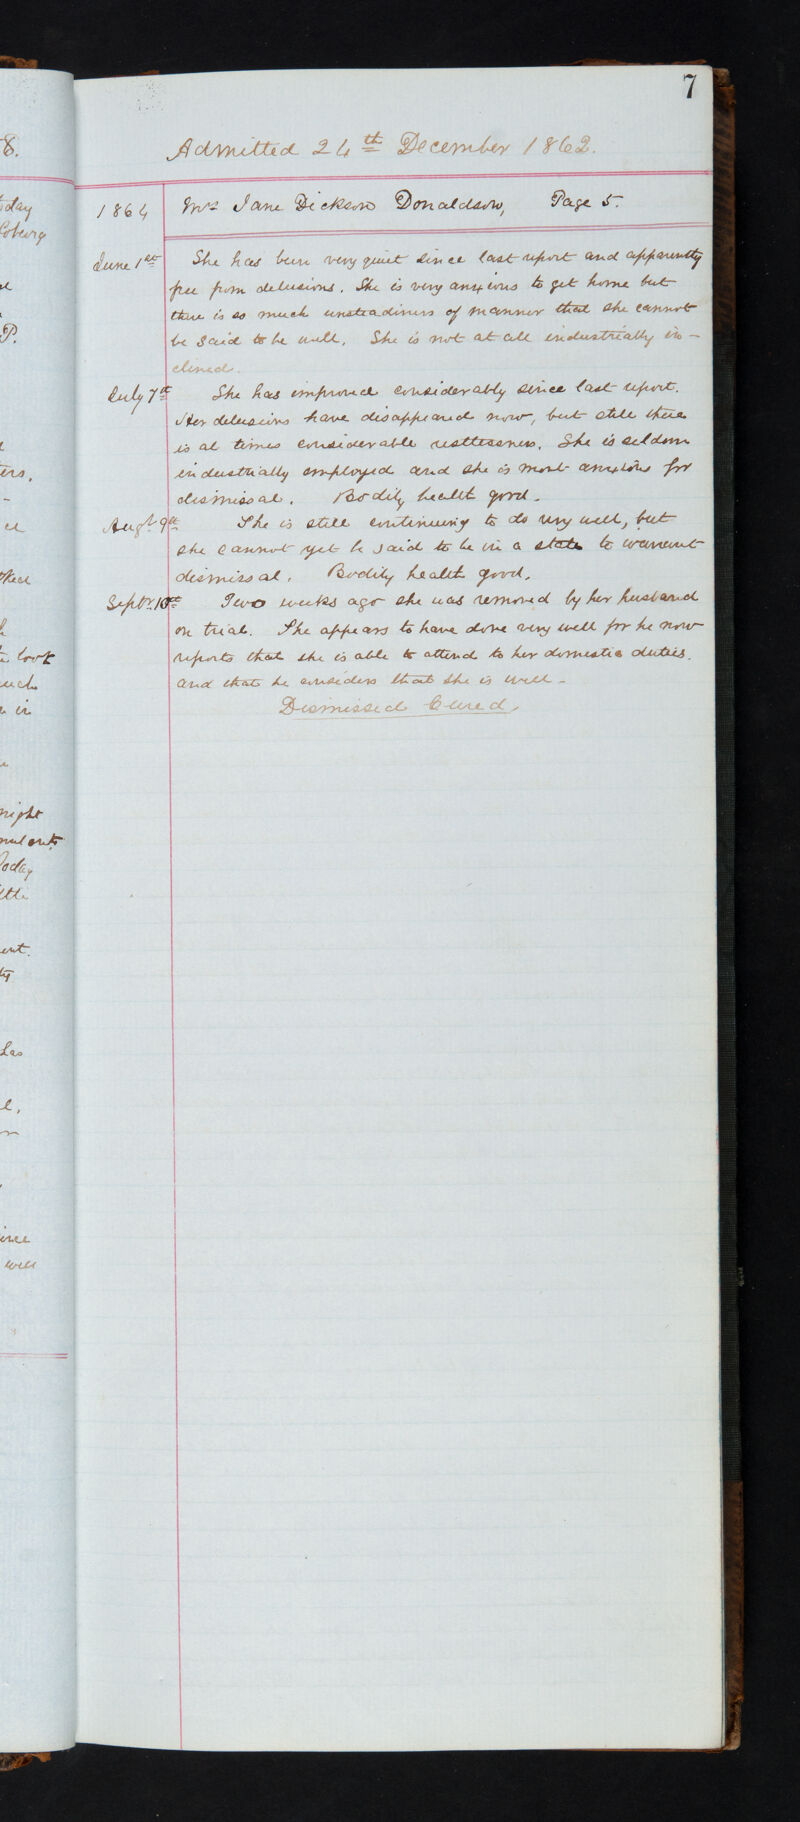 7
Admitted 24th December 1862.
1864 Mrs Jane Dickson Donaldson, Page 5.
June 1st She has been very quiet since last report and apparently
free from delusions. She is very anxious to get home but
there is so much unsteadiness of manner that she cannot
be said to be well. She is not at all industrially in-
clined.
July 7th She has improved considerably since last report.
Her delusions have disappeared now, but still there
is at times considerable restlessness. She is seldom
industrially employed and she is most anxious for
dismissal. Bodily health good.
Augt. 9th She is still continuing to do very well, but
she cannot yet be said to be in a state to warrant
dismissal. Bodily health good.
Septr. 10th Two weeks ago she was removed by her husband
on trial. She appears to have done very well for he now
reports that she is able to attend to her domestic duties.
and that he considers that she is well -
Dismissed Cured
8.
today
Coburg
P.
look
in
night
Today
ent.
has
will